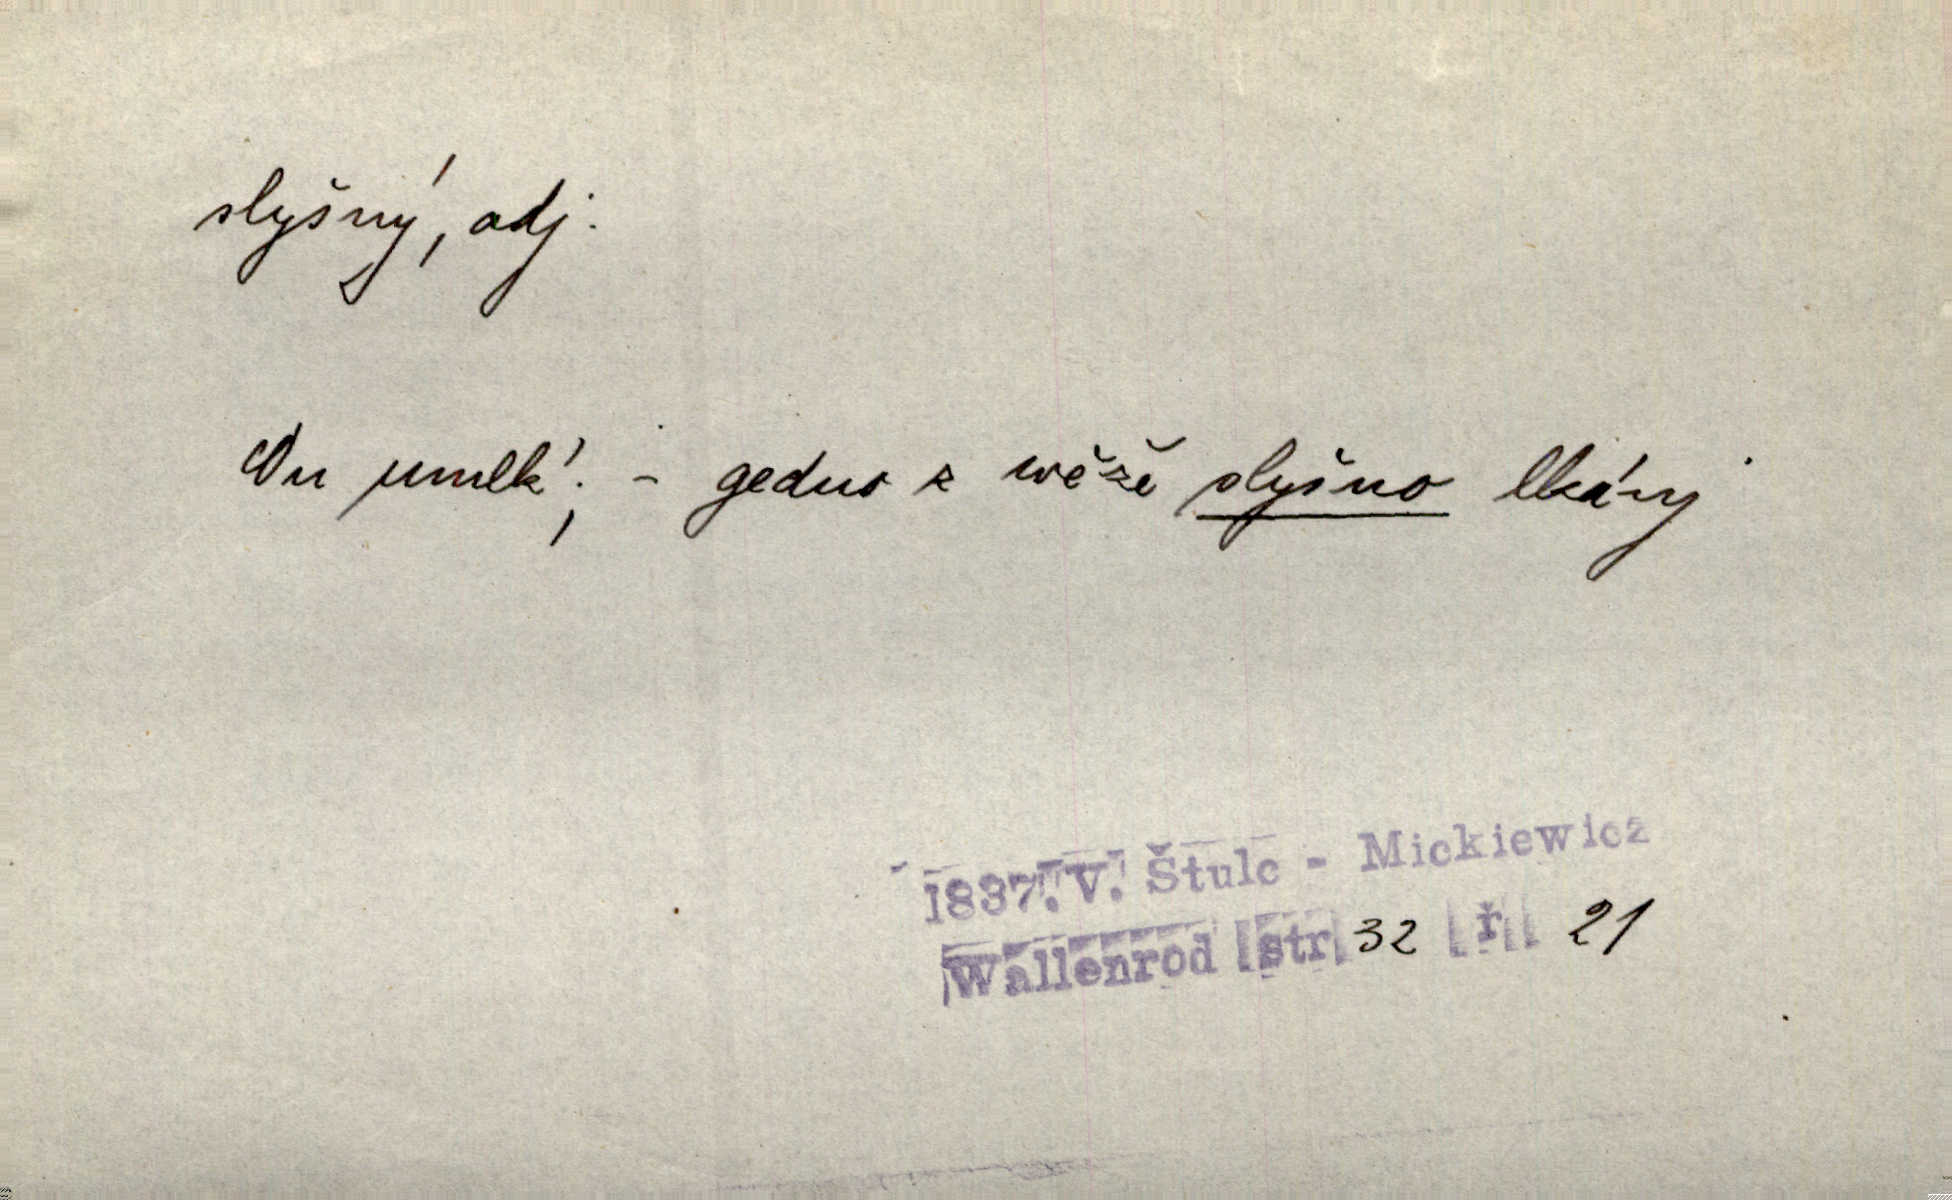 slyšný, adj.
On umlk'; - gedno z wěžě slyšno lkány
1837. V. Štulc - Mickiewicz
Wallenrod str 32 ř 21